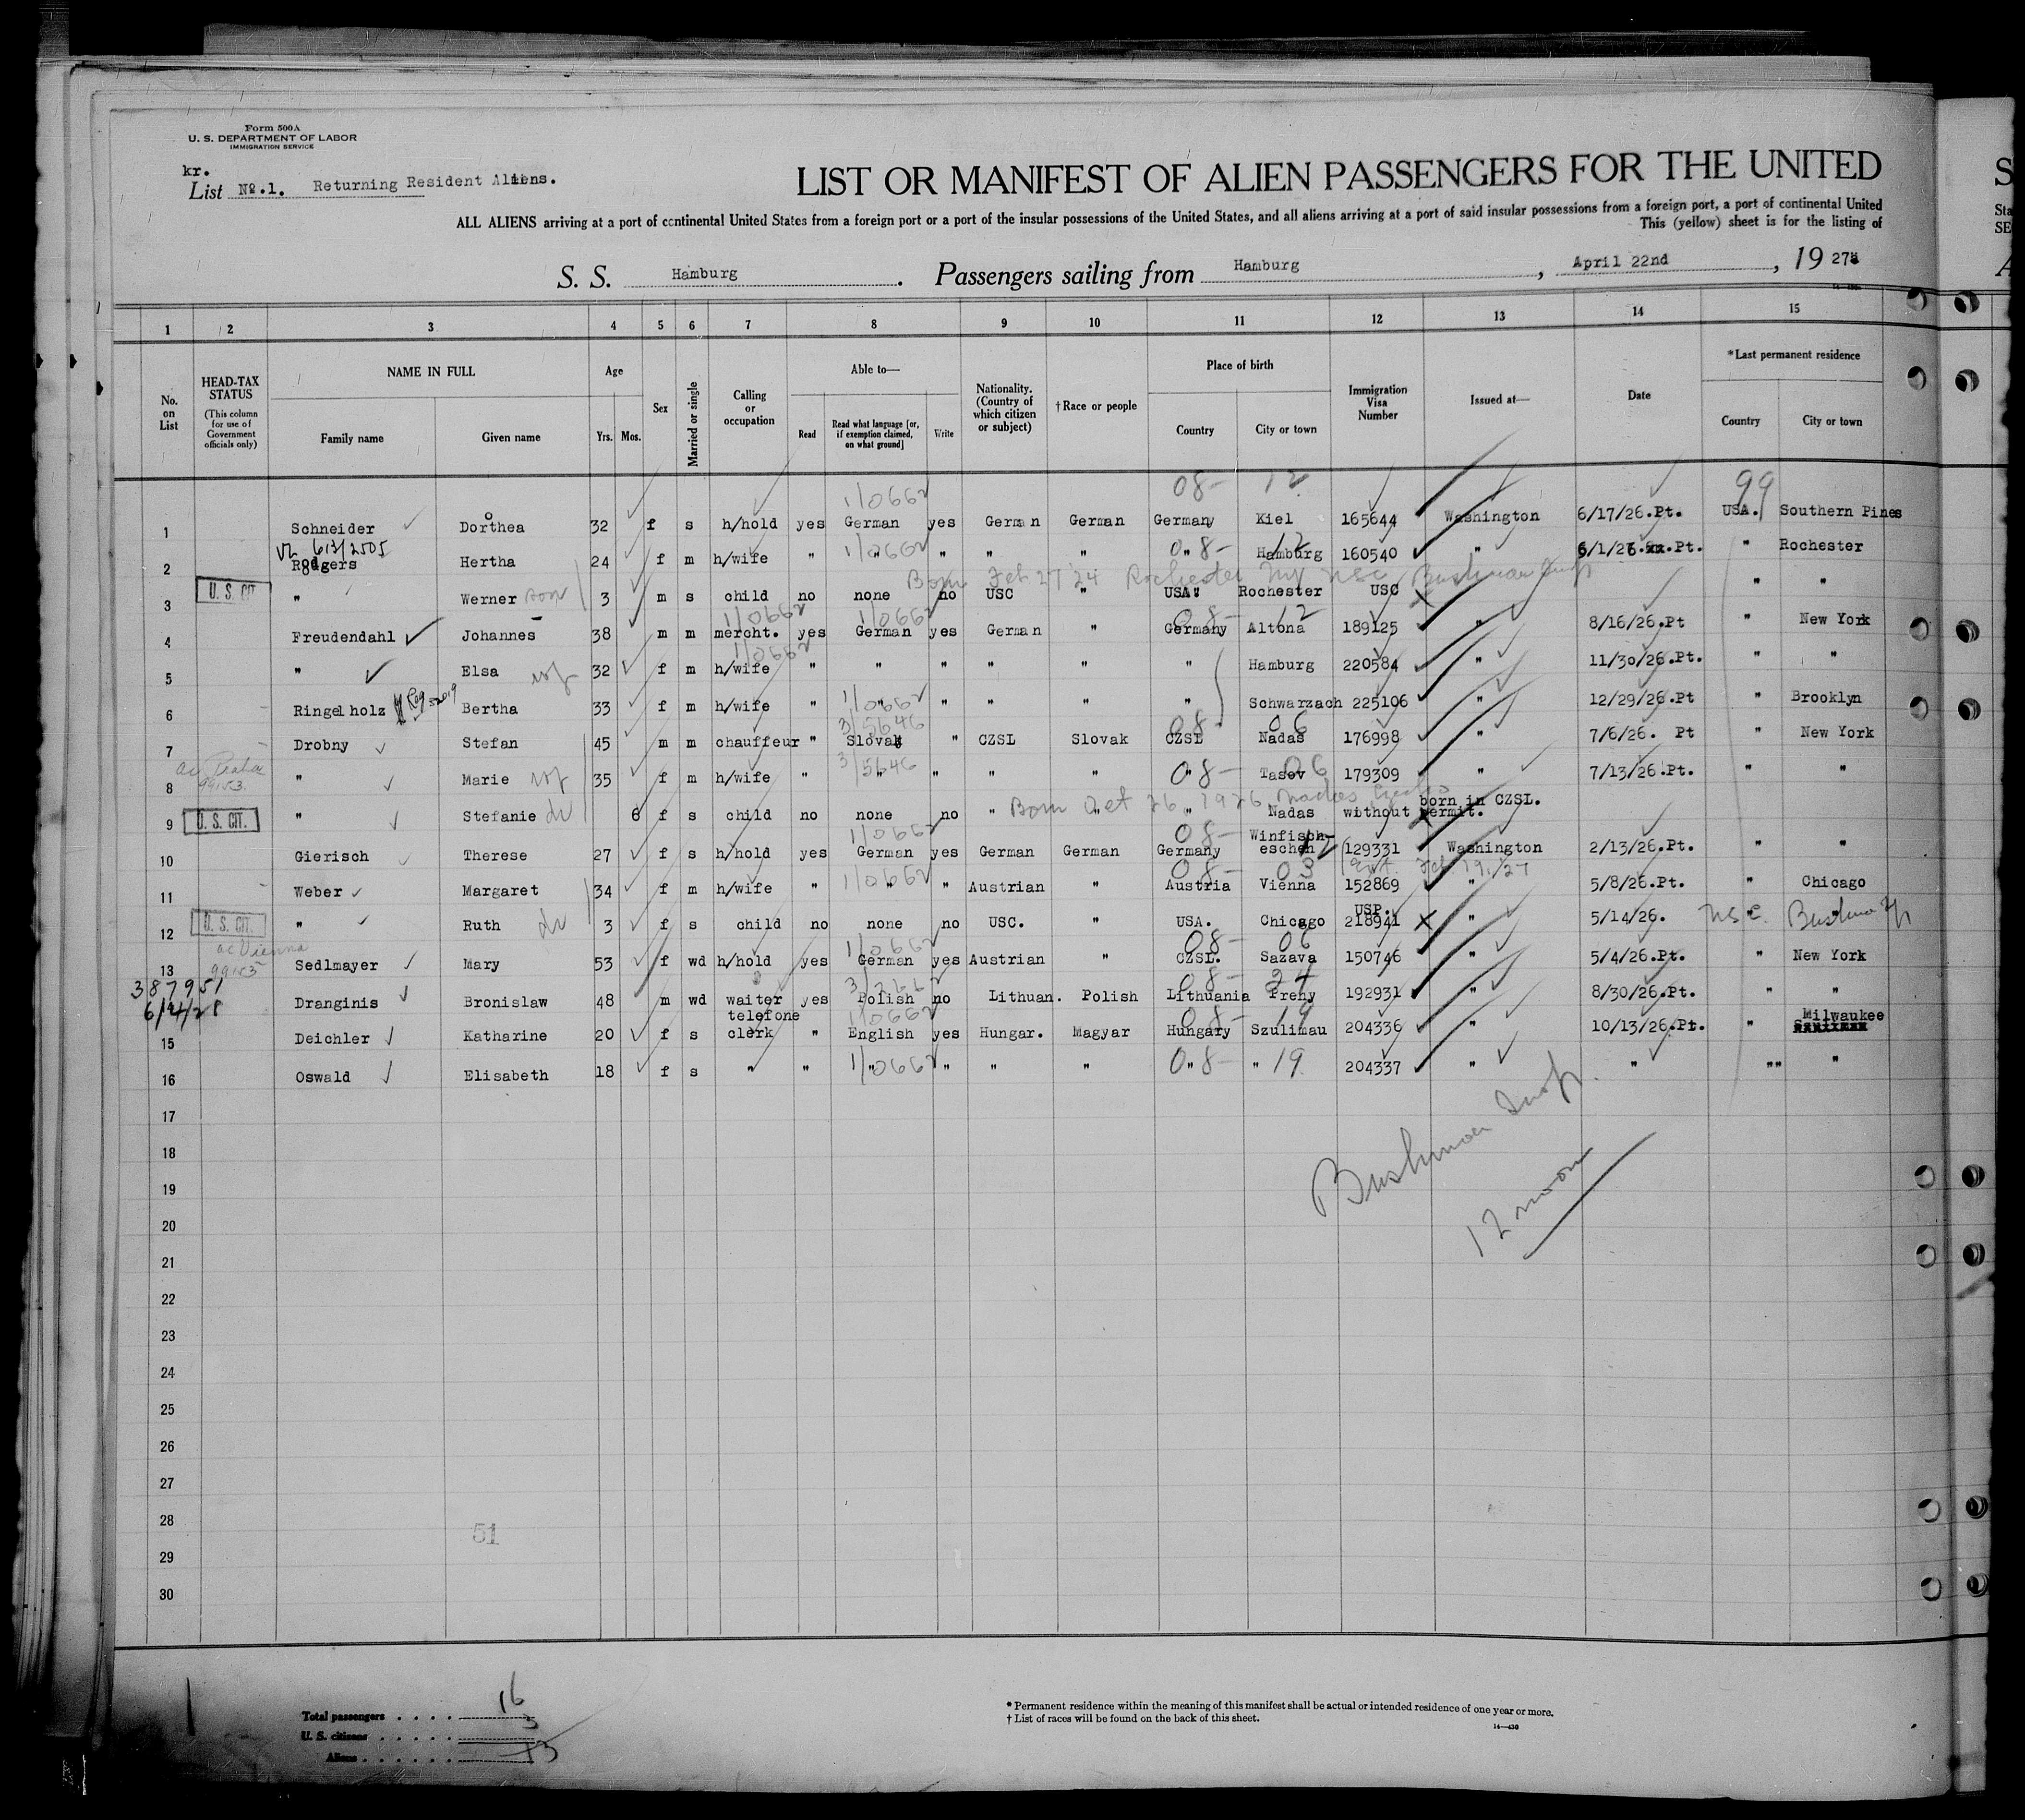 Form 500A
U. S. DEPARTMENT OF LABOR
IMMIGRATION SERVICE
kr.
List No.1. Returning Resident Aliens.
LIST OR MANIFEST OF ALIEN PASSENGERS FOR THE UNITED
ALL ALIENS arriving at a port of continental United States from a foreign port or a port of the insular possessions of the United States, and all aliens arriving at a port of said insular possessions from a foreign port, a port of continental United
This (yellow) sheet is for the listing of
S. S. Hamburg. Passengers sailing from Hamburg, April 22nd, 1927
1 2 3 4 5 6 7 8 9 10 11 12 13 14 15
No. on List
HEAD-TAX STATUS (This column for use of Government officials only)
NAME IN FULL Family name Given name
Age Yrs. Mos.
Sex
Married or single
Calling or occupation
Able to— Read Read what language [or, if exemption claimed, on what ground] Write
Nationality. (Country of which citizen or subject)
†Race or people
Place of birth Country City or town
Immigration Visa Number
Issued at—
Date
*Last permanent residence Country City or town
1/0662 08- 12 99
1 Schneider Dorthea 32 f s h/hold yes German yes German German Germany Kiel 165644 Washington 6/17/26.Pt. USA. Southern Pines
613/2505 1/0662 08- 12
2 Rodgers Hertha 24 f m h/wife " " " " " " Hamburg 160540 " 6/1/26.Pt. " Rochester
Born Feb 27 '24 Rochester NY USC Bushman Insp
3 U. S. CIT. " Werner son 3 m s child no none no USC " USA. Rochester USC " "
1/0662 1/0662 08- 12
4 Freudendahl Johannes 38 m m mercht. yes German yes German " Germany Altona 189125 " 8/16/26.Pt " New York
1/0662
5 " Elsa wf 32 f m h/wife " " " " " " Hamburg 220584 " 11/30/26.Pt. " "
1/0662
6 Ringelholz Bertha 33 f m h/wife " " " " " " Schwarzach 225106 " 12/29/26.Pt " Brooklyn
3/5646 08- 06
7 Drobny Stefan 45 m m chauffeur " Slovak " CZSL Slovak CZSL Nadas 176998 " 7/6/26. Pt " New York
3/5646 08- 06
8 99153 " Marie wf 35 f m h/wife " " " " " " Tasov 179309 " 7/13/26.Pt. " "
Born Oct 26 1926 Nadas
9 U. S. CIT. " Stefanie 6 f s child no none no " " " Nadas born in CZSL. without permit.
1/0662 08- 12
10 Gierisch Therese 27 f s h/hold yes German yes German German Germany Winfisch-eschen 129331 Washington 2/13/26.Pt. " "
1/0662 08- 03 Ext. Feb 19, /27
11 Weber Margaret 34 f m h/wife " " " Austrian " Austria Vienna 152869 " 5/8/26.Pt. " Chicago
12 U. S. CIT. " Ruth 3 f s child no none no USC. " USA. Chicago USP. 218941 " 5/14/26. " "
1/0662 08- 06
13 99153 Sedlmayer Mary 53 f wd h/hold yes German yes Austrian " CZSL. Sazava 150746 " 5/4/26.Pt. " New York
387951 08- 24
Dranginis Bronislaw 48 m wd waiter yes Polish no Lithuan. Polish Lithuania Preny 192931 " 8/30/26.Pt. " "
1/0662 08- 19
15 Deichler Katharine 20 f s telefone clerk " English yes Hungar. Magyar Hungary Szulimau 204336 " 10/13/26.Pt. " Milwaukee
1/0662 08- 19
16 Oswald Elisabeth 18 f s " " " " " " " " 204337 " " "" "
17
18
19
20
21
22
23
24
25
26
27
28
29
30
Bushman Insp.
12 noon
51
Total passengers 16
U. S. citizens 3
Aliens 13
* Permanent residence within the meaning of this manifest shall be actual or intended residence of one year or more.
† List of races will be found on the back of this sheet.
14—430